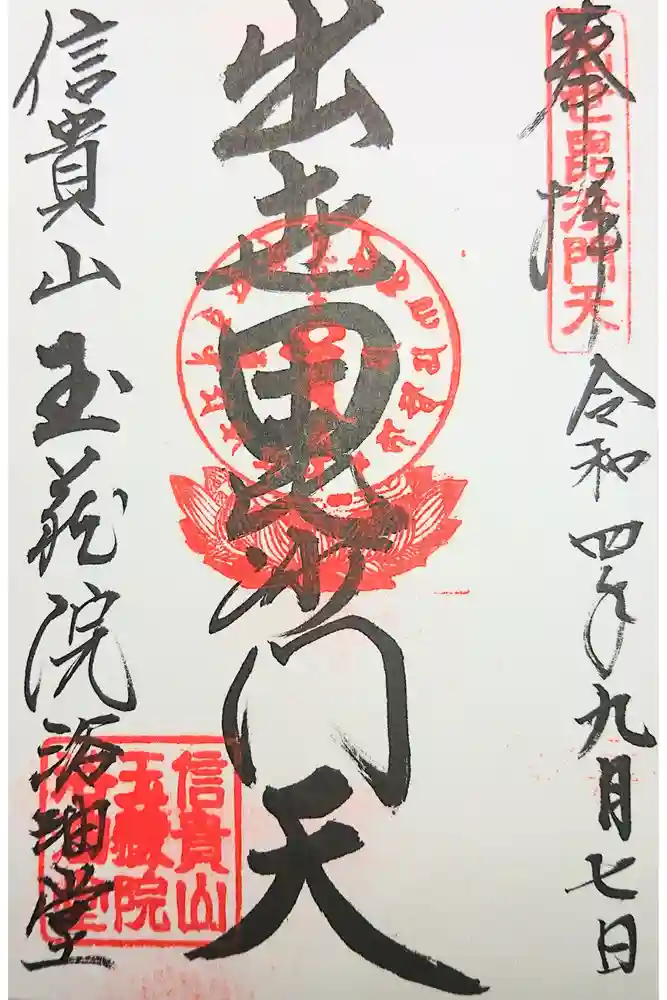 奉拝
令和四年九月七日
出世毘沙門天
信貴山玉蔵院浴油堂
出世毘沙門天
信貴山
玉蔵院
浴油堂